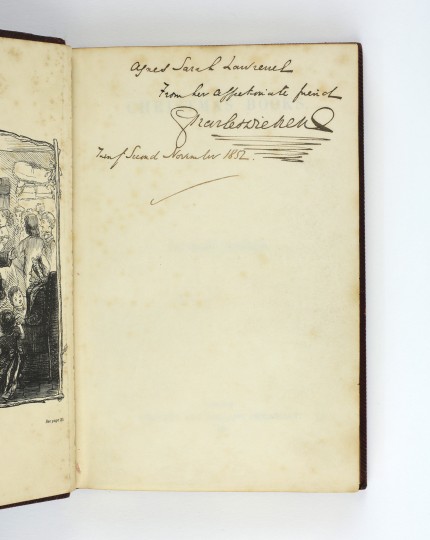 Agnes Sarah Lawrence
From her affectionate friend
Charles Dickens
Twenty Second November 1852.
See page